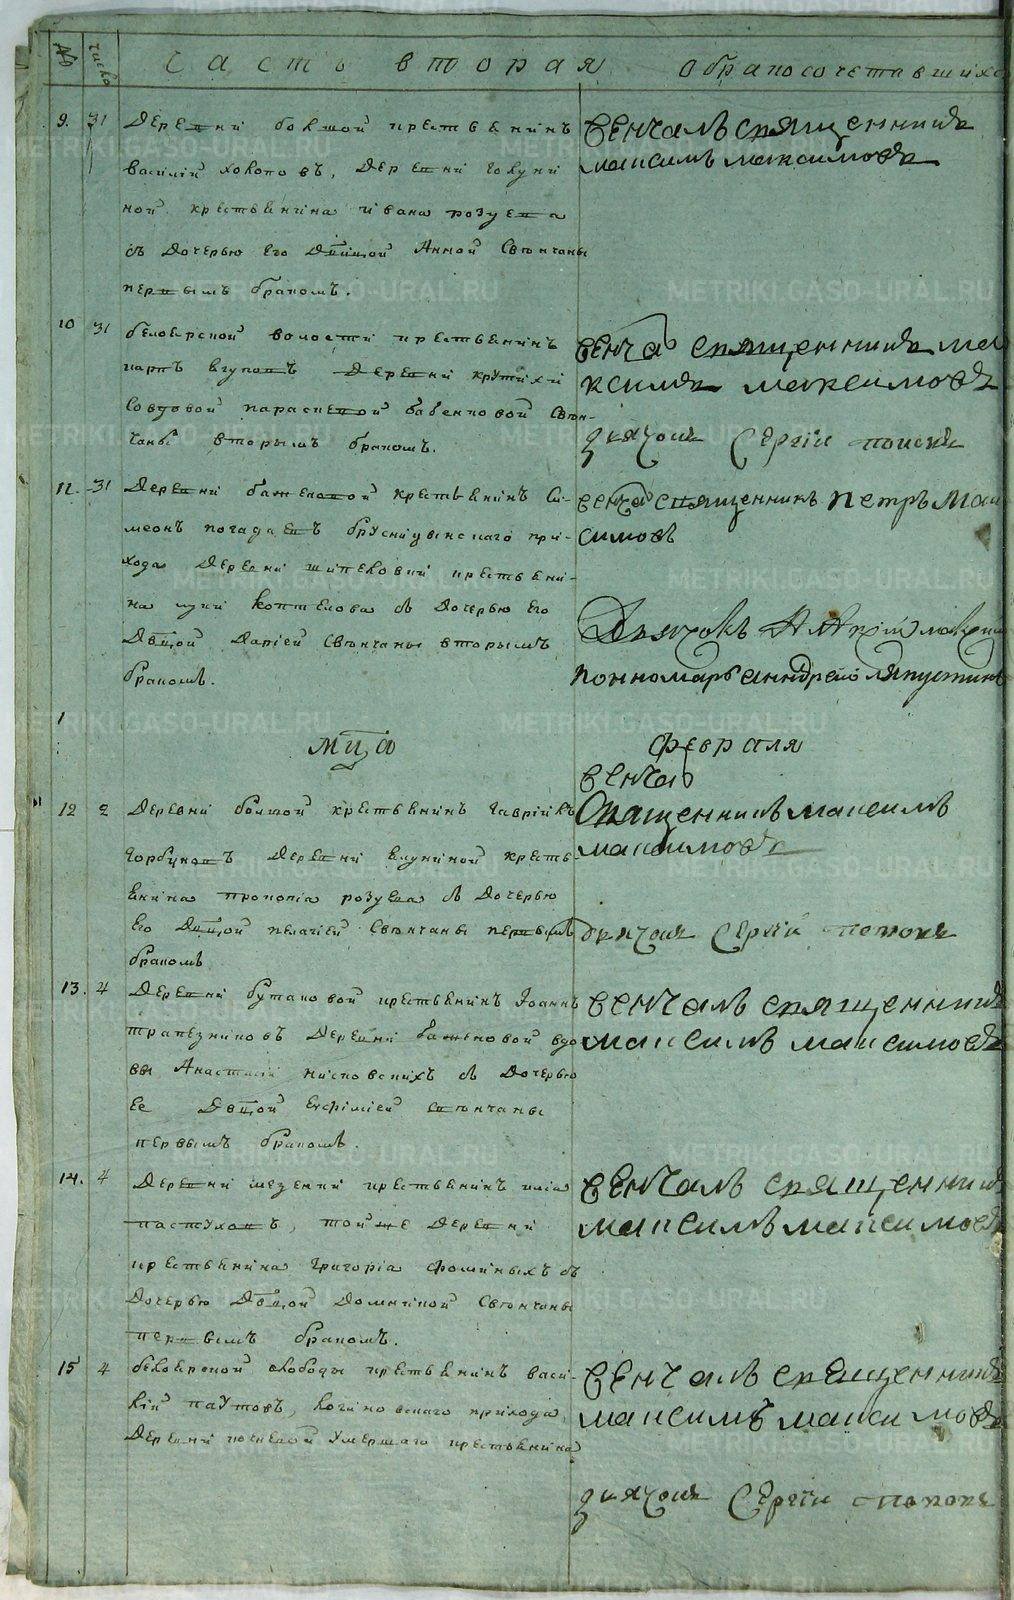 № число Часть вторая о бракосочетавшихс
9. 31 Деревни большой крестьянинъ
василий
ной крестьянина ивана розуева
съ дочерью его двцой Анной свѣнчаны
первымъ бракомъ.
венчалъ священникъ
максимъ максимовъ
10 31 белоярской волости крестьянинъ
карпъ деревни
вдовой параскевой бабенковой свѣн-
чаны вторымъ бракомъ.
венча священникъ ма
ксимъ максимовъ
дьячокъ Сергiй поповъ
11. 31 Деревни крестьянинъ Си-
меонъ погадаевъ бруснiцынскаго при-
хода деревни крестьяни-
на коптелова съ дочерью его
двцой дарiей свѣнчаны вторымъ
бракомъ.
венча священникъ петръ мак
симовъ
Дьячокъ
пономарь анндрей ляпустинъ
мца февраля
12 2 Деревни большой крестьянинъ гаврiилъ
горбуновъ деревни кресть-
янина прокопiа розуева съ дочерью
его двцой пелагiей свѣнчаны первымъ
бракомъ
венча
Священникъ максимъ
максимовъ
дьячокъ Сергiй поповъ
13. 4 Деревни бутаковой крестьянинъ Iоаннъ
трапезниковъ деревни баженовой вдо
вы Анастасiи съ дочерью
ее двцой Евфимiей свѣнчаны
первымъ бракомъ.
венчалъ священникъ
максимъ максимовъ
14. 4 Деревни крестьянинъ илiа
пастуховъ, той же деревни
крестьянина григорiа фоминыхъ съ
дочерью двцой домникой свѣнчаны
первымъ бракомъ.
венчалъ священникъ
максимъ максимовъ
15 4 белоярской слободы крестьянинъ васи-
лiй паутовъ, логиновскаго прихода,
деревни умершаго крестьянина
венчалъ священникъ
максимъ максимовъ
дьячокъ Сергiй поповъ
METRIKI.GASO-URAL.RU